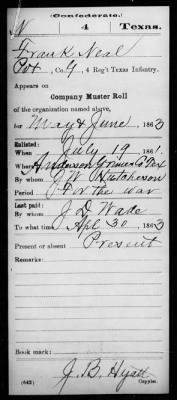 (Confederate.)
N 4 Texas.
Frank Neal
Pvt, Co. G, 4 Reg't Texas Infantry.
Appears on
Company Muster Roll
of the organization named above,
for May & June, 1863
Enlisted:
When July 19, 186
Where Anderson Grimes Co Tex
By whom J W Hutcherson
Period For the war
Last paid:
By whom J. D. Wade
To what time Apl 30, 1863
Present or absent Present
Remarks:
Book mark:
(642) J. B. Hyatt
Copyist.